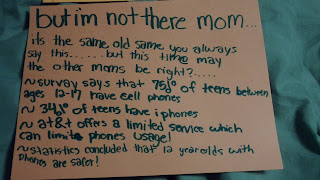 but im not there mom...
its the same old same you always
say this.......but this time may
the other moms be right?.....
~survay says that 75% of teens between
ages 12-17 have cell phones
~ 34% of teens have iphones
~ at&t offers a limited service which
can limit phones usage!
~statistics concluded that 12 year olds with
phones are safer!